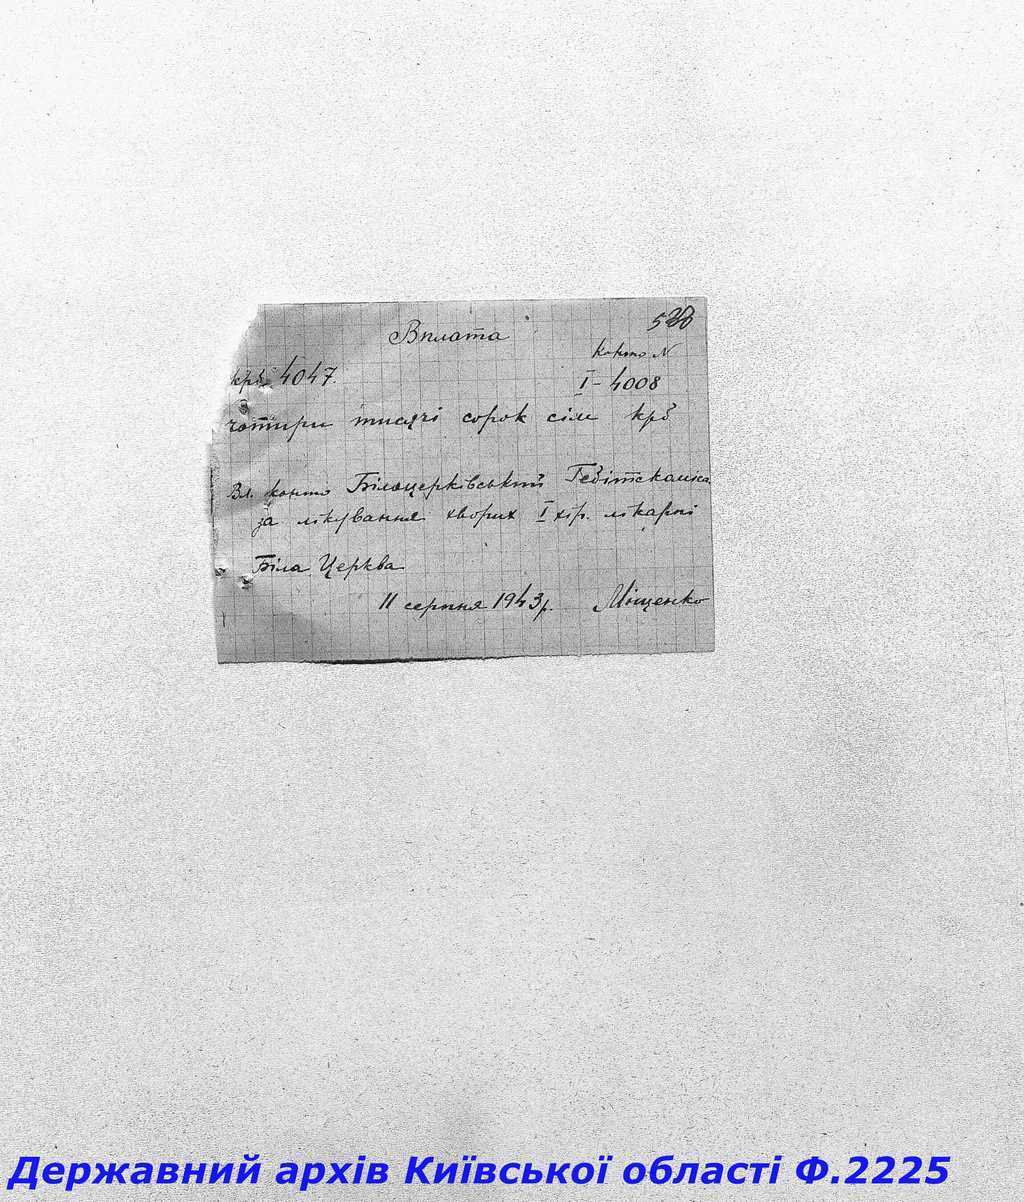 Вплата
конто N
крб 4047.
I - 4008
чотири тисячі сорок сім крб
Вл. конто Білоцерківський Гебітскаміса
за лікування хворих I хір. лікарні
Біла Церква
11 серпня 1943 р. Міщенко
Державний архів Київської області Ф.2225